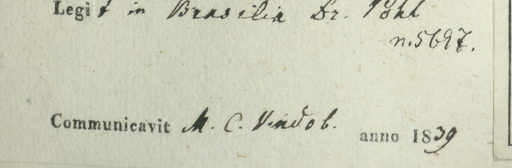 Legit in Brasilia Dr. Pohl
n. 5697.
Communicavit M. C. Vindob. anno 1839